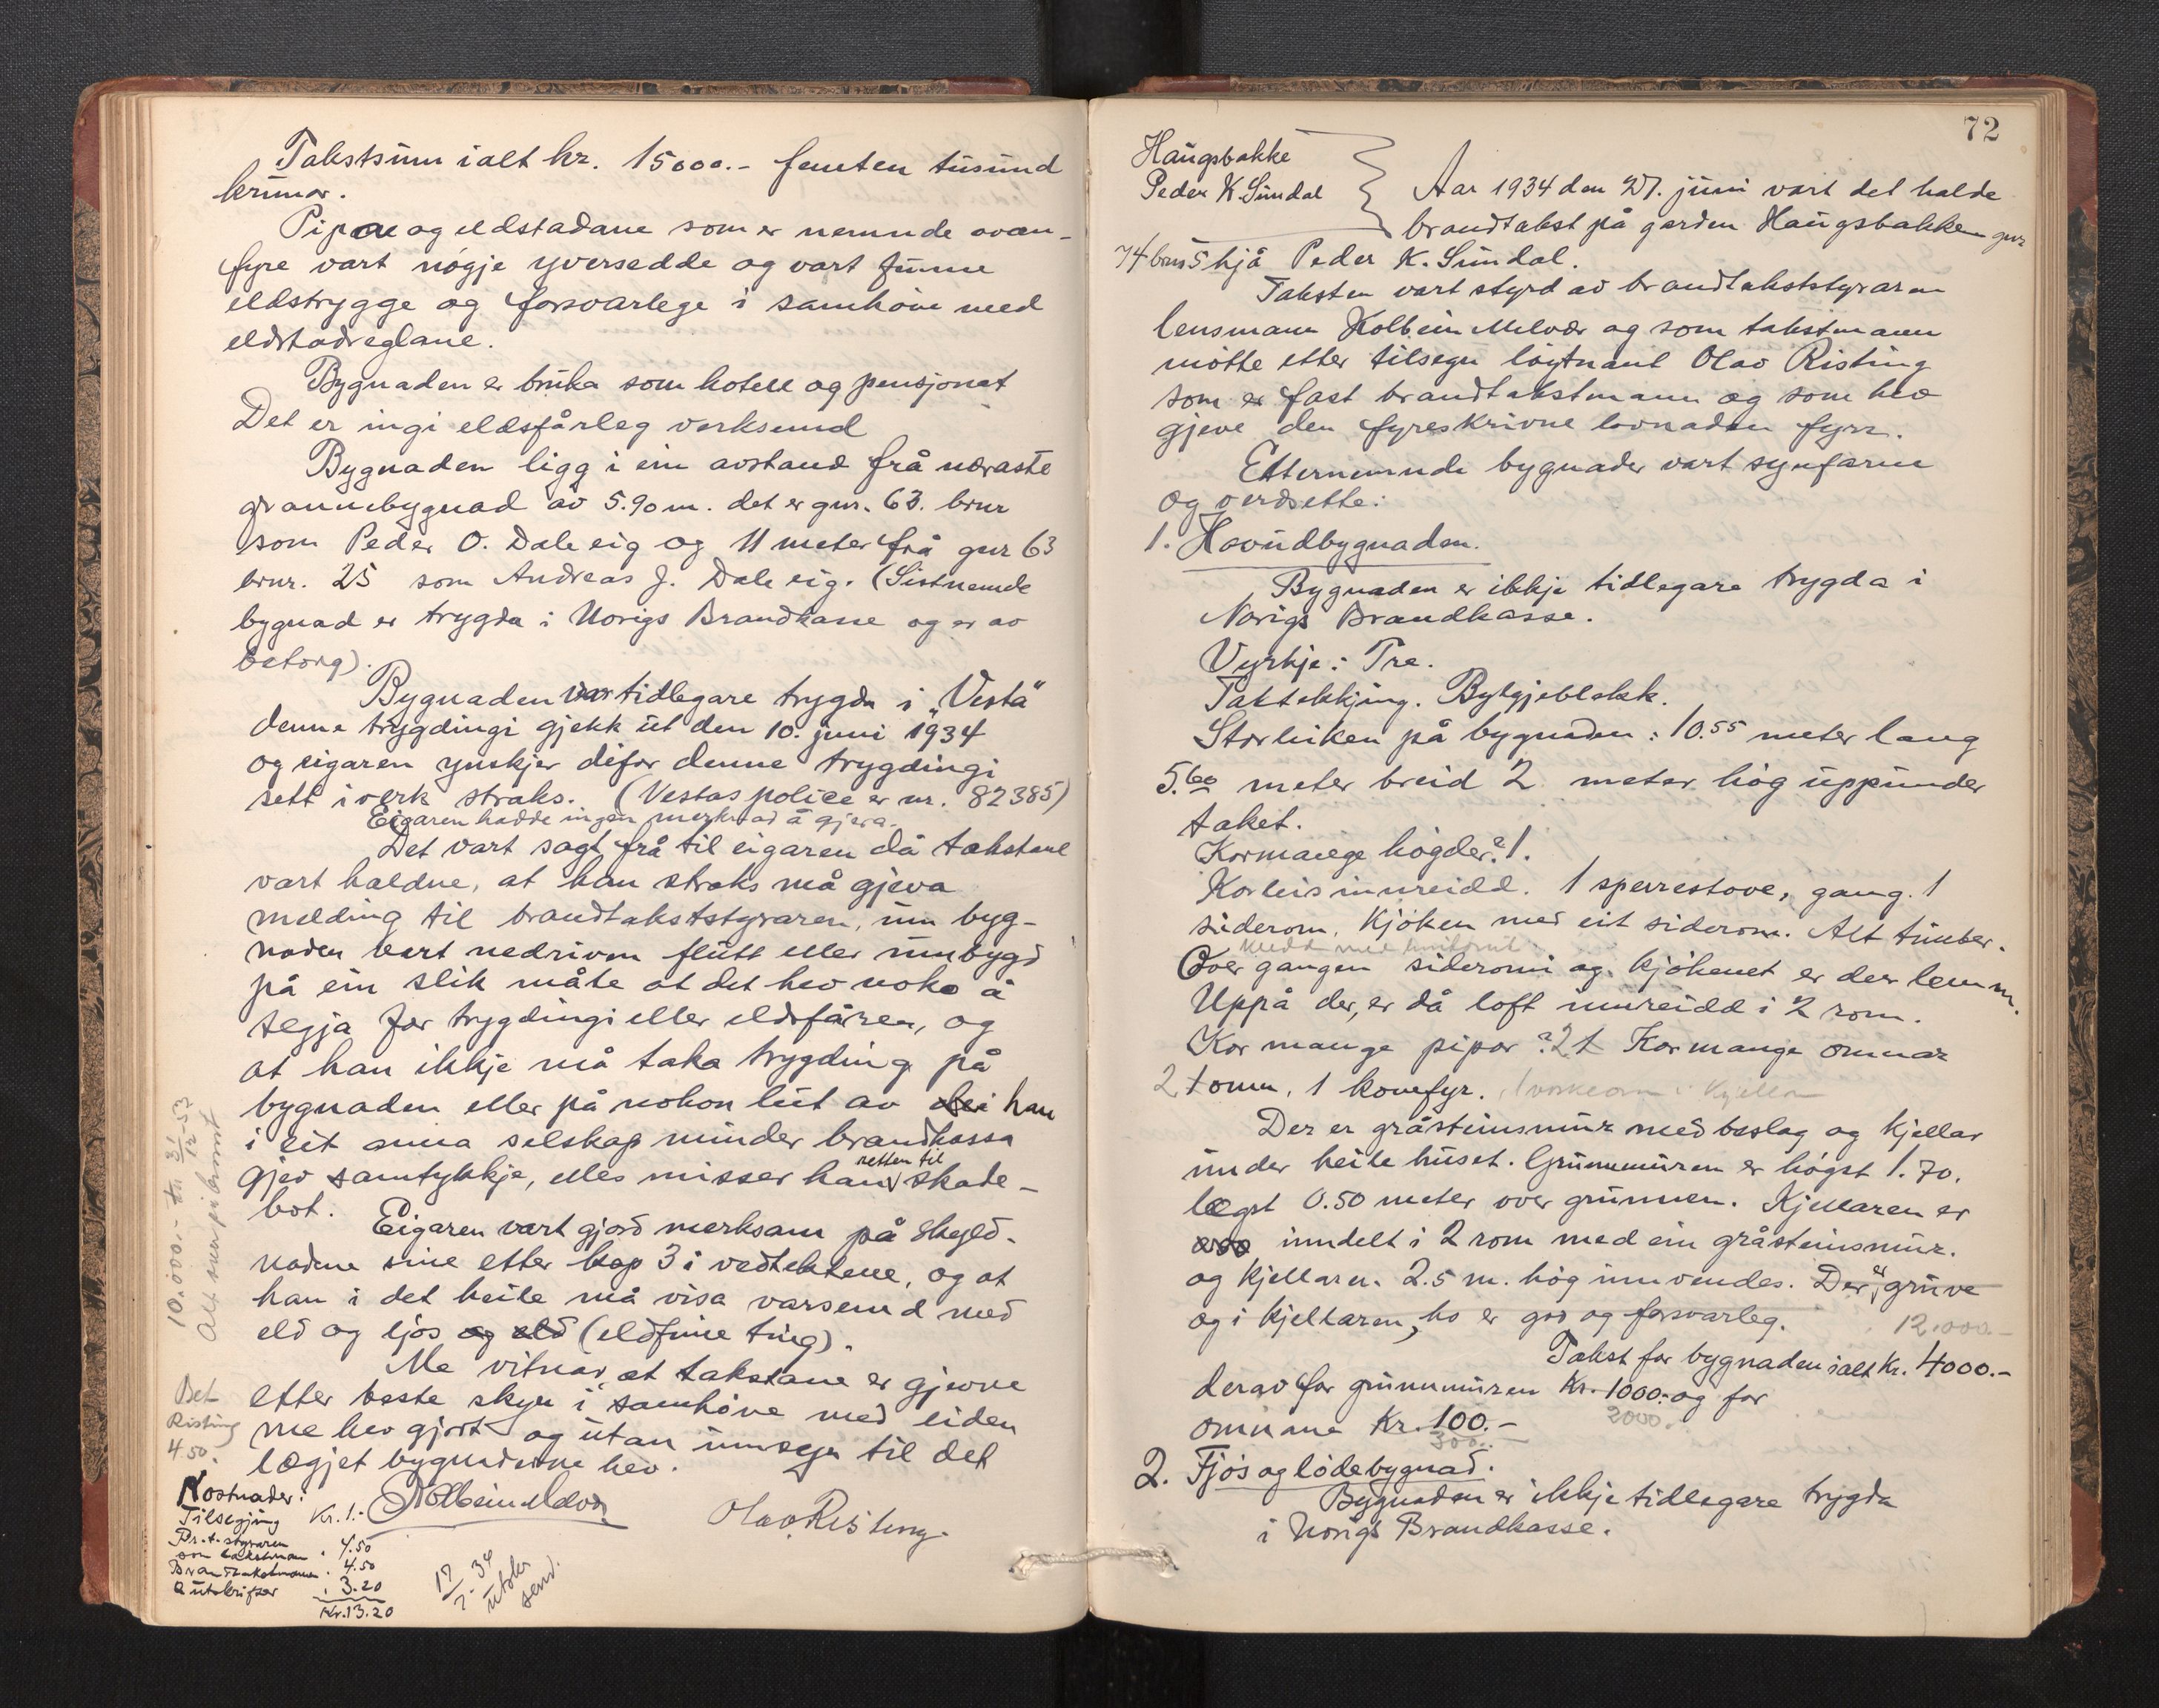 Takstsum ialt kr. 15000.- femten tusund
krunor.
Pipone og eldstadane som er nemnde ovan-
fyre vart nøgje yversedde og vart funne
eldstrygge og forsvarlege i samhøve med
eldstadreglane.
Bygnaden er bruka som hotell og pensjonat
Det er ingi eldsfårleg verksemd
Bygnaden ligg i ein avstand frå næraste
grannebygnad av 5.90 m. det er gnr. 63. brnr
som Peder O. Dale eig og 11 meter frå gnr 63
brnr. 25 som Andreas J. Dale eig. (Sistnemde
bygnad er trygda i Norigs Brandkasse og er av
betong).
Bygnaden var tidlegare trygda i „Vesta"
denne trygdingi gjekk ut den 10. juni 1934
og eigaren ynskjer difor denne trygdingi
sett i verk straks. (Vestas police er nr. 82385)
Eigaren hadde ingen merknad å gjera.
Det vart sagt frå til eigaren då takstane
vart haldne, at han straks må gjeva
melding til brandtakststyraren, um byg-
naden vert nedriven flutt eller umbygd
på ein slik måte at det hev noko å
segja for trygdingi eller eldsfåren, og
at han ikkje må taka trygding på
bygnaden eller på nokon lut av han
i eit anna selskap minder brandkassa
gjev samtykkje, elles misser han retten til skade-
bot.
Eigaren vart gjord merksam på skyld-
nadene sine etter kap 3 i vedtektene, og at
han i det heile må visa varsemd med
eld og ljos og eld (eldfime ting).
Me vitnar at takstane er gjevne
etter beste skyn i samhøve med eiden
me hev gjort og utan umsyn til det
lægjet bygnadene hev.
Kolbein Melvær
Olav Risting.
10.000.- 31/12-53
Alt
Bet
Risting
4.50.
Kostnader:
Tilsegjing Kr. 1.-
Br.t. styraren
som takstmann " 4.50
Brandtakstmann " 4.50
2 utskrifter " 3.20
Kr. 13.20
17/7-34
utskr
send.
72
Haugsbakke
Peder K. Sundal
Aar 1934 den 27. juni vart det halde
brandtakst på garden Haugsbakken gnr
74 brnr 5 hjå Peder K. Sundal.
Taksten vart styrd av brandtakststyraren
lensmann Kolbein Melvær og som takstmann
møtte etter tilsegn løytnant Olav Risting
som er fast brandtakstmann og som hev
gjeve den fyreskrivne lovnaden fyrr.
Etternemnde bygnader vart synfarne
og verdsette:
1. Hovudbygnaden.
Bygnaden er ikkje tidlegare trygda i
Norigs Brandkasse.
Vyrkje: Tre.
Taktekkjing. Bylgjeblekk.
Storleiken på bygnaden: 10.55 meter lang
5.60 meter breid 2 meter høg uppunder
taket.
Kormange høgder? 1.
Korleis innreidd. 1 sperrestove, gang. 1
siderom. Kjøken med eit siderom. Alt timber.
Over gangen sideromi og kjøkenet er der lemm.
Uppå der, er då loft innreidd i 2 rom.
Kor mange pipor? 2 1 Kor mange omnar
2 1 omn, 1 komfyr. 1 vaskeomn i kjellar
Der er gråsteinsmur med beslag og kjellar
under heile huset. Grunnmuren er høgst 1.70.
lægst 0.50 meter over grunnen. Kjellaren er
inndelt i 2 rom med ein gråsteinsmur.
og kjellaren 2.5 m. høg innvendes. Der er gruve
og i kjellaren, ho er god og forsvarleg.
12.000.-
Takst for bygnaden ialt Kr. 4000.-
derav for grunnmuren Kr. 1000.- og for
2000.-
omnane Kr. 100.-
300.-
2. Fjøs og lødebygnad.
Bygnaden er ikkje tidlegare trygda
i Norigs Brandkasse.